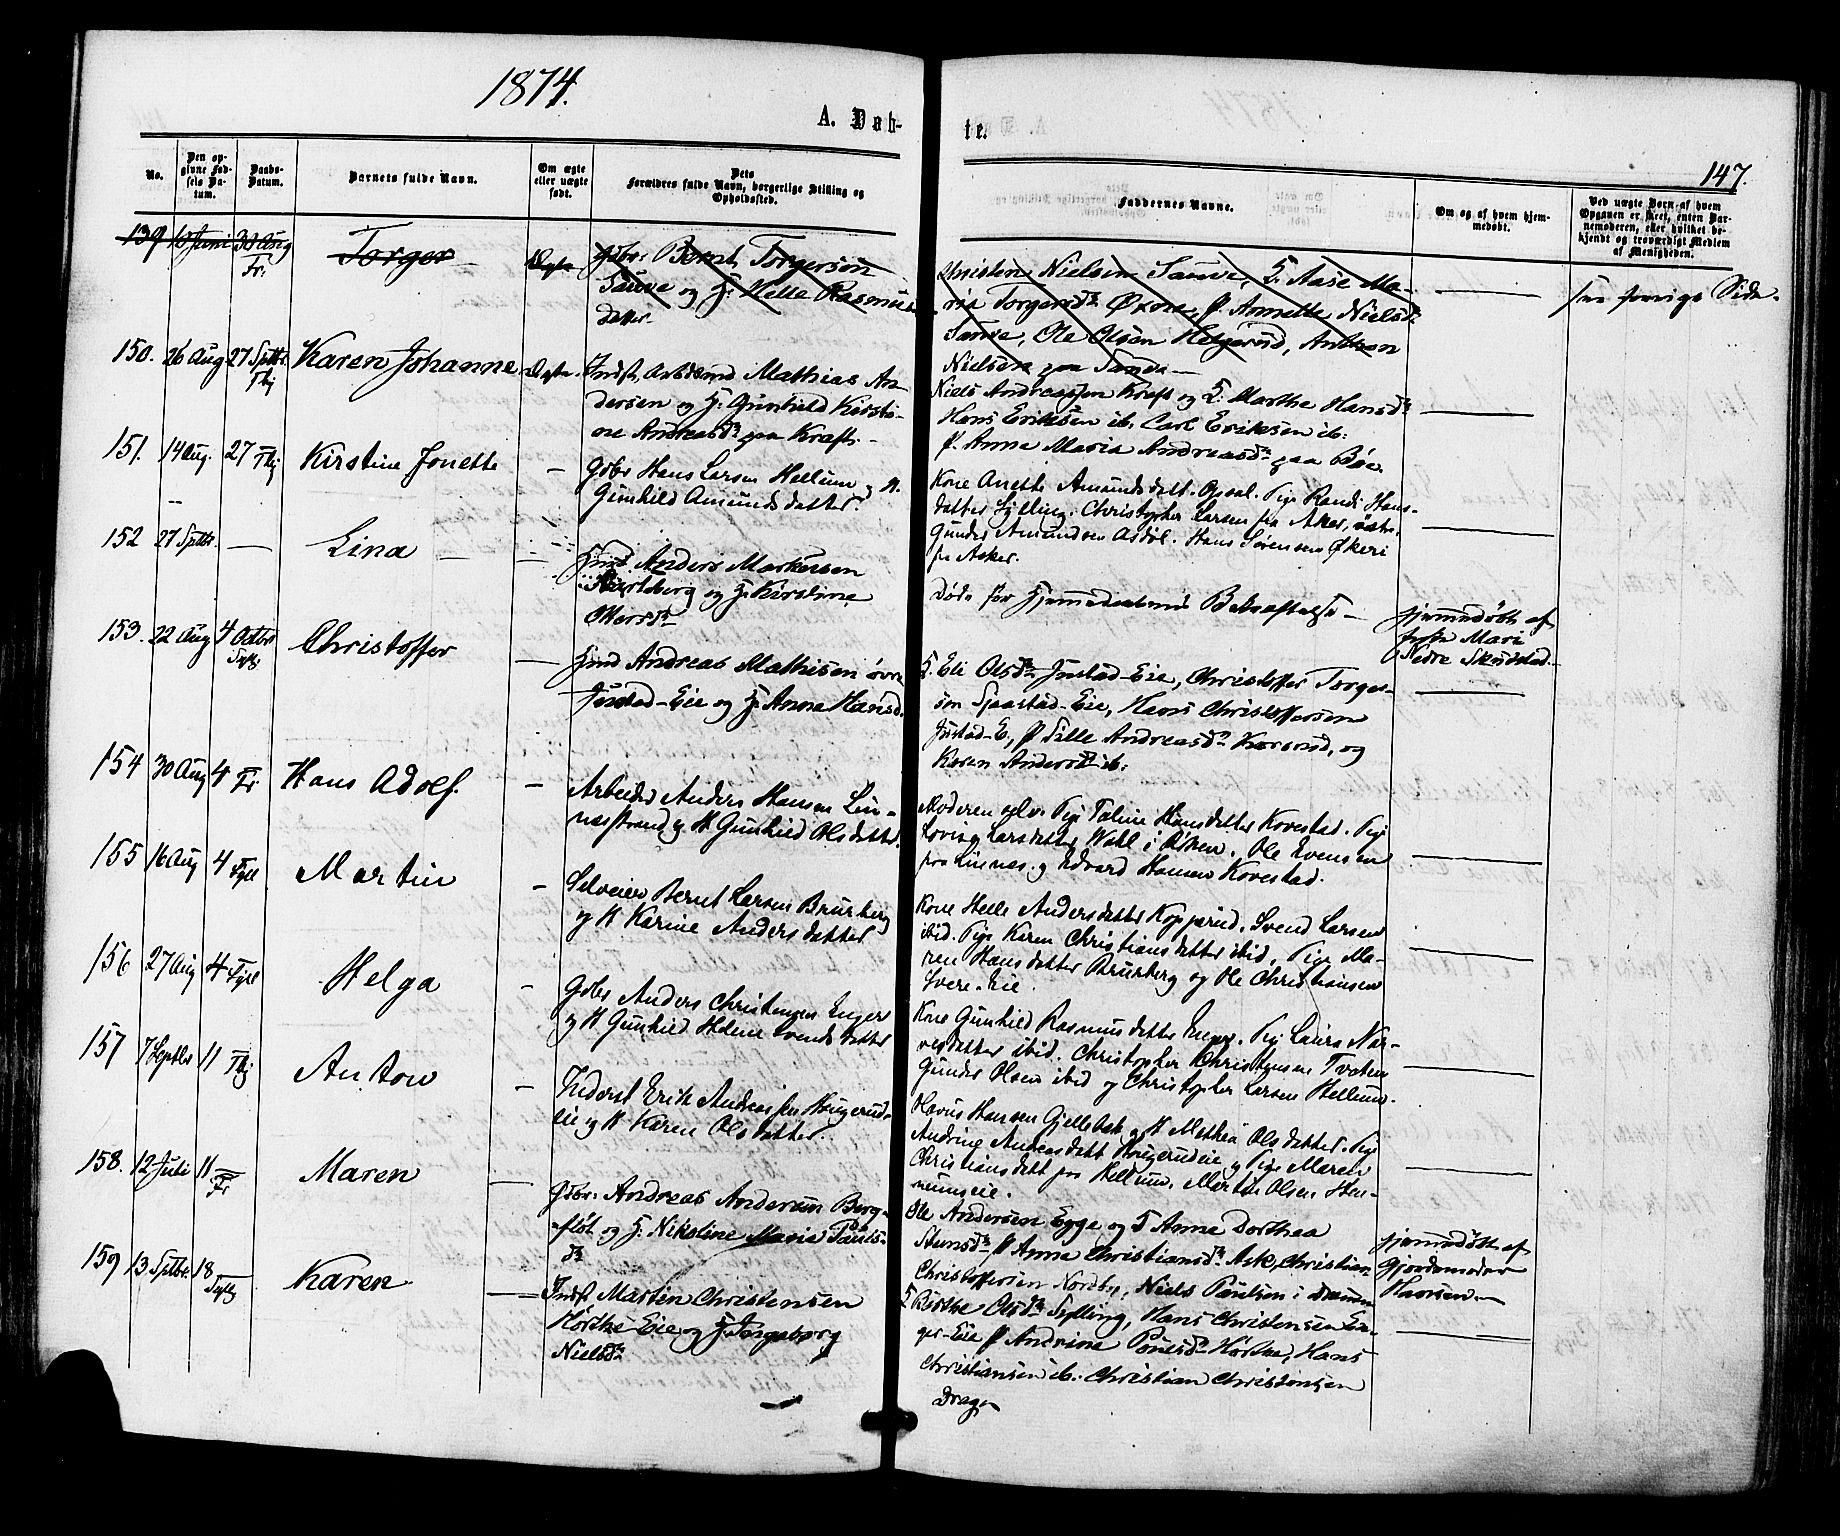 1874.
A. Døb-
te.
147.
No.
Den op-
givne Fød-
sels Da-
tum.
Daabs-
Datum.
Barnets fulde Navn.
Om ægte
eller uægte
født.
Dets
Forældres fulde Navn, borgerlige Stilling og
Opholdssted.
Faddernes Navne.
Om og af hvem hjem-
medøbt.
Ved uægte Børn af hvem
Opgaven er skeet, enten Bar-
nemoderen, eller hvilket be-
kjendt og troværdigt Medlem
af Menigheden.
139 10 Juni 30 Aug
Fr:
Torger
Ægte
Gdbr: Bernt Torgersen
Sauve og H: Helle Rasmus
datter.
Christen Nielsen Sauve, K. Aase Ma-
ria Torgersd. P. Annette Nielsd
Sauve, Ole Olsen Helgerud, Anthon
Nielsen paa Sauve
see forrige Side.
150. 26 Aug 27 Septbr
Thj
Karen Johanne
Ægte.
Indst, Mathias An-
dersen og H. Gunhild Kirsti-
ne Andreasd paa Kraft.
Niels Andreassen Kraft og K. Marthe Hansd
Hans Eriksen ib. Carl Eriksen ib:
P. Anne Maria Andreasd paa Bøe.
151. 14 Aug. 27 Thj
Kirstine Jonette
Gdbr Hans Larsen Hellum og H.
Gunhild Amundsdatter.
Kone Anette Amundsdatt. Opsal. Pige Randi Hans-
datter Sylling. Christopher Larsen fra Asker,
Gunder Amundsen Asdøl. Hans Sørensen Økeri
fr Asker.
152 27 Septbr.
Lina
Anders Markusen
og H. Kirstine
Døde før Hjemmedaabens Bekræftelse
hjemmedøbt af
Mari
Nedre Skudstad
153. 22 Aug 4 Octbr
Sylg:
Christoffer
Hmd Andreas Mathisen øvre
Justad-Eie og H. Anna Hansd.
K. Eli Olsd Justad-Eie, Christoffer Torger-
sen Sjaastad-Eie, Hans Christoffersen
Justad-E, P Sille Andreasd og
Karen Andersd ib:
154 30 Aug 4 Fr
Hans Adolf.
Arbeider Anders Hansen Lin-
næsstrand og H Gunhild Olsdatter.
Moderen selv. Pige Taline Hansdatter Kovestad. Pige
Lovise Larsdatter Wahl i Røken. Ole Evensen
fra Linnæs. og Edvard Hansen Kovestad.
155 16 Aug 4 Syll
Martin
Selveier Bernt Larsen Brurberg
og H Karine Andersdatter
Kone Helle Andersdatter Kopperud. Svend Larsen
ibid. Pige Karen Christiansdatter ibid, Pige Ma-
ren Hansdatter Brurberg og Ole Christiansen
156 27 Aug 4 Syll
Helga
Gdbr Anders Christensen Enger
og H Gunhild Helene Svendsdatter
Kone Gunhild Rasmusdatter Enger. Pig Laura Nar-
vesdatter ibid. Christopher Christensen Tveten
Gunder Olsen ibid og Christopher Larsen Hellum.
157 7 Septbr 11 Thj
Anton
Inderst Erik Andreassen Haugerud-
eie og H Karen Olsdatter.
Hansen Gjellebek og H Mathea Olsdatter. Pige
Andrine Andreasdatt Haugerudeie og Pige Maren
Christiansdatt fra Hellum. Martin Olsen Hen-
numseie.
158. 12 Juli 11
Fr
Maren
Gdbr: Andreas Andersen Berg-
fløt og H: Nikoline Maria Pauls-
d
Ole Andersen Egge og K Anne Dorthea
Steensd P Anna Christiansd Ask, Christian
Christoffersen Nordby, Niels Paulsen i Dramm
hjemmedøbt af
Gjordemoder
Hansen
159 13 Septbr. 18
Sylg
Karen
Indst Martin Christensen
Hørthe Eie og H Ingeborg
Nielsd
K Berthe Olsd Sylling, Hans Christensen En-
ger-Eie P Andrine Hørthe, Hans
Christiansen ib. Christian Christensen
Drage